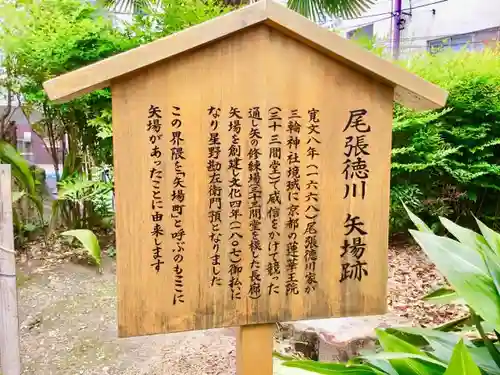 尾張徳川 矢場跡
寛文八年(一六六八)尾張徳川家が
三輪神社境域に京都八蓮華王院
(三十三間堂)にて威信をかけて競った
通し矢の修練場(三十三間堂を模した長廊)
矢場を創建し文化四年(一八〇七)御払いに
なり星野勘左衛門預となりました
この界隈を「矢場町」と呼ぶのもここに
矢場があったことに由来します